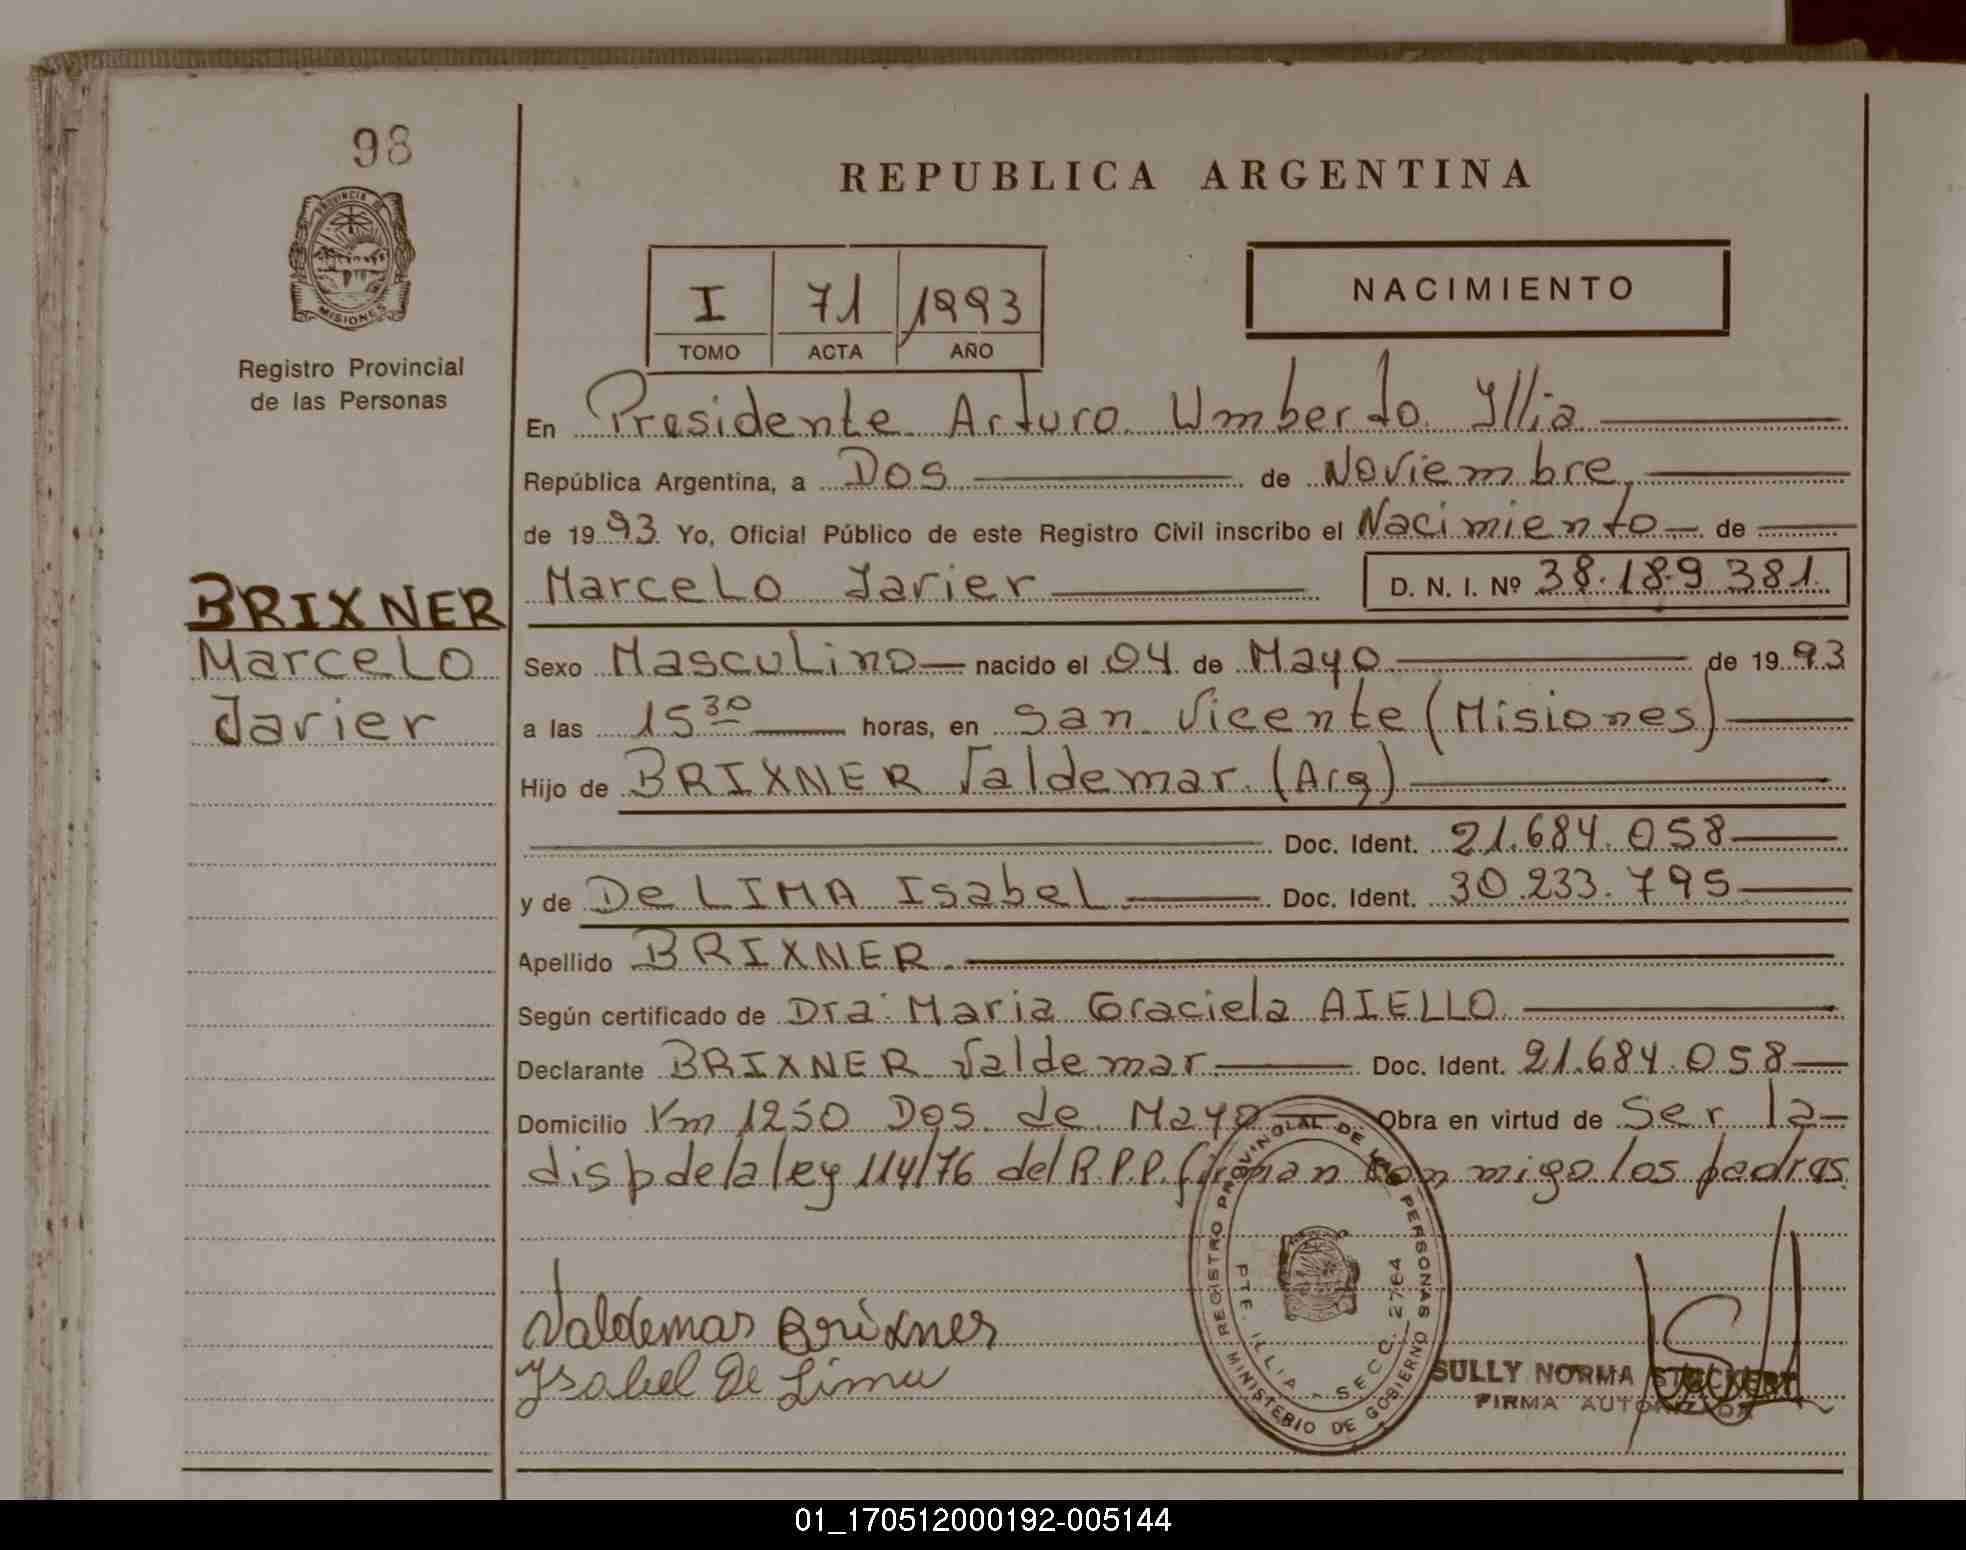 98
PROVINCIA DE
MISIONES
Registro Provincial
de las Personas
BRIXNER
Marcelo
Javier
REPUBLICA ARGENTINA
I 71 1993
TOMO ACTA AÑO
NACIMIENTO
En Presidente Arturo Umberto Illia
República Argentina, a Dos de Noviembre
de 1993 Yo, Oficial Público de este Registro Civil inscribo el Nacimiento de
Marcelo Javier D. N. I. Nº 38.189.381
Sexo Masculino nacido el 04 de Mayo de 1993
a las 15 30 horas, en San Vicente (Misiones)
Hijo de BRIXNER Valdemar (Arg)
Doc. Ident. 21.684.058
y de De LIMA Isabel Doc. Ident. 30.233.795
Apellido BRIXNER
Según certificado de Dra: Maria Graciela AIELLO
Declarante BRIXNER Valdemar Doc. Ident. 21.684.058
Domicilio Km 1250 Dos de Mayo Obra en virtud de Ser la
disp de la ley 114/76 del R.P.P. firman con migo los padres
Valdemar Brixner
Ysabel De Lima
REGISTRO PROVINCIAL DE LAS PERSONAS
MINISTERIO DE GOBIERNO
PTE. ILLIA - SECC. 2764
SULLY NORMA STECKERT
FIRMA AUTORIZADA
01_170512000192-005144